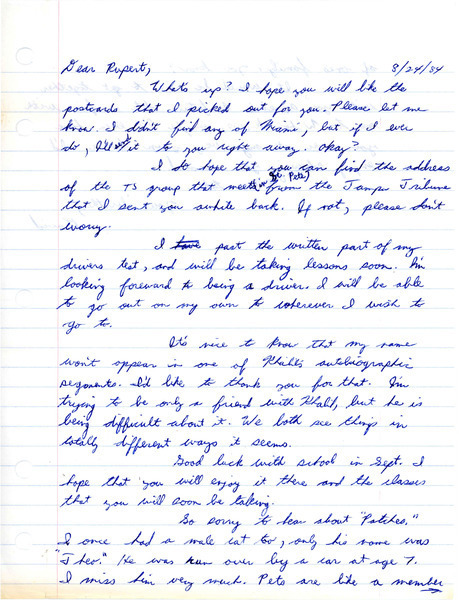 Dear Rupert, 8/24/84
What's up? I hope you will like the
postcards that I picked out for you. Please let me
know. I didn't find any of Miami, but if I ever
do, I'll send it to you right away. Okay?
I do hope that you can find the address
of the TS group that meets (in St. Pete) from the Tampa Tribune
that I sent you awhile back. If not, please don't
worry.
I have past the written part of my
drivers test, and will be taking lessons soon. I'm
looking foreward to being a driver. I will be able
to go out on my own to wherever I wish to
go to.
It's nice to know that my name
won't appear in one of Khalil's autobiographic
segments. I'd like to thank you for that. I'm
trying to be only a friend with Khalil, but he is
being difficult about it. We both see things in
totally different ways it seems.
Good luck with school in Sept. I
hope that you will enjoy it there and the classes
that you will soon be taking.
So sorry to hear about "Patches."
I once had a male cat too, only his name was
"Theo." He was run over by a car at age 7.
I miss him very much. Pets are like a member